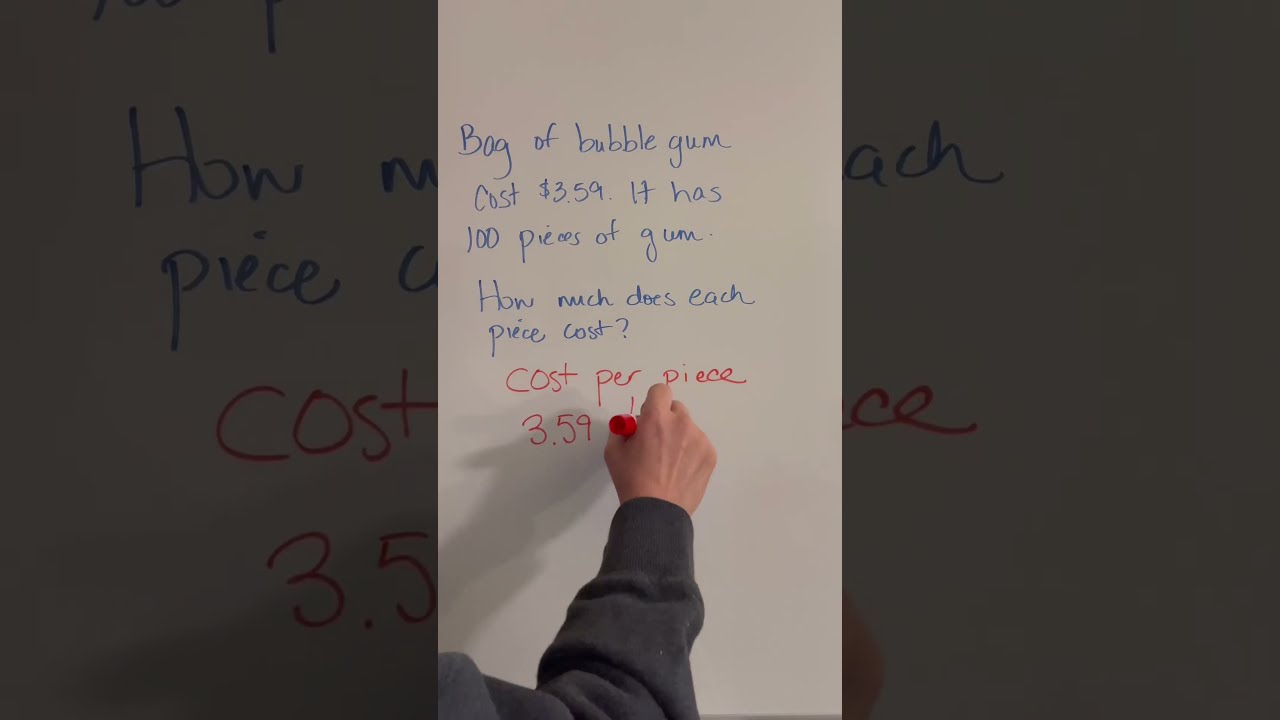 Bag of bubble gum
Cost $3.59. It has
100 pieces of gum.
How much does each
piece cost?
Cost per piece
3.59